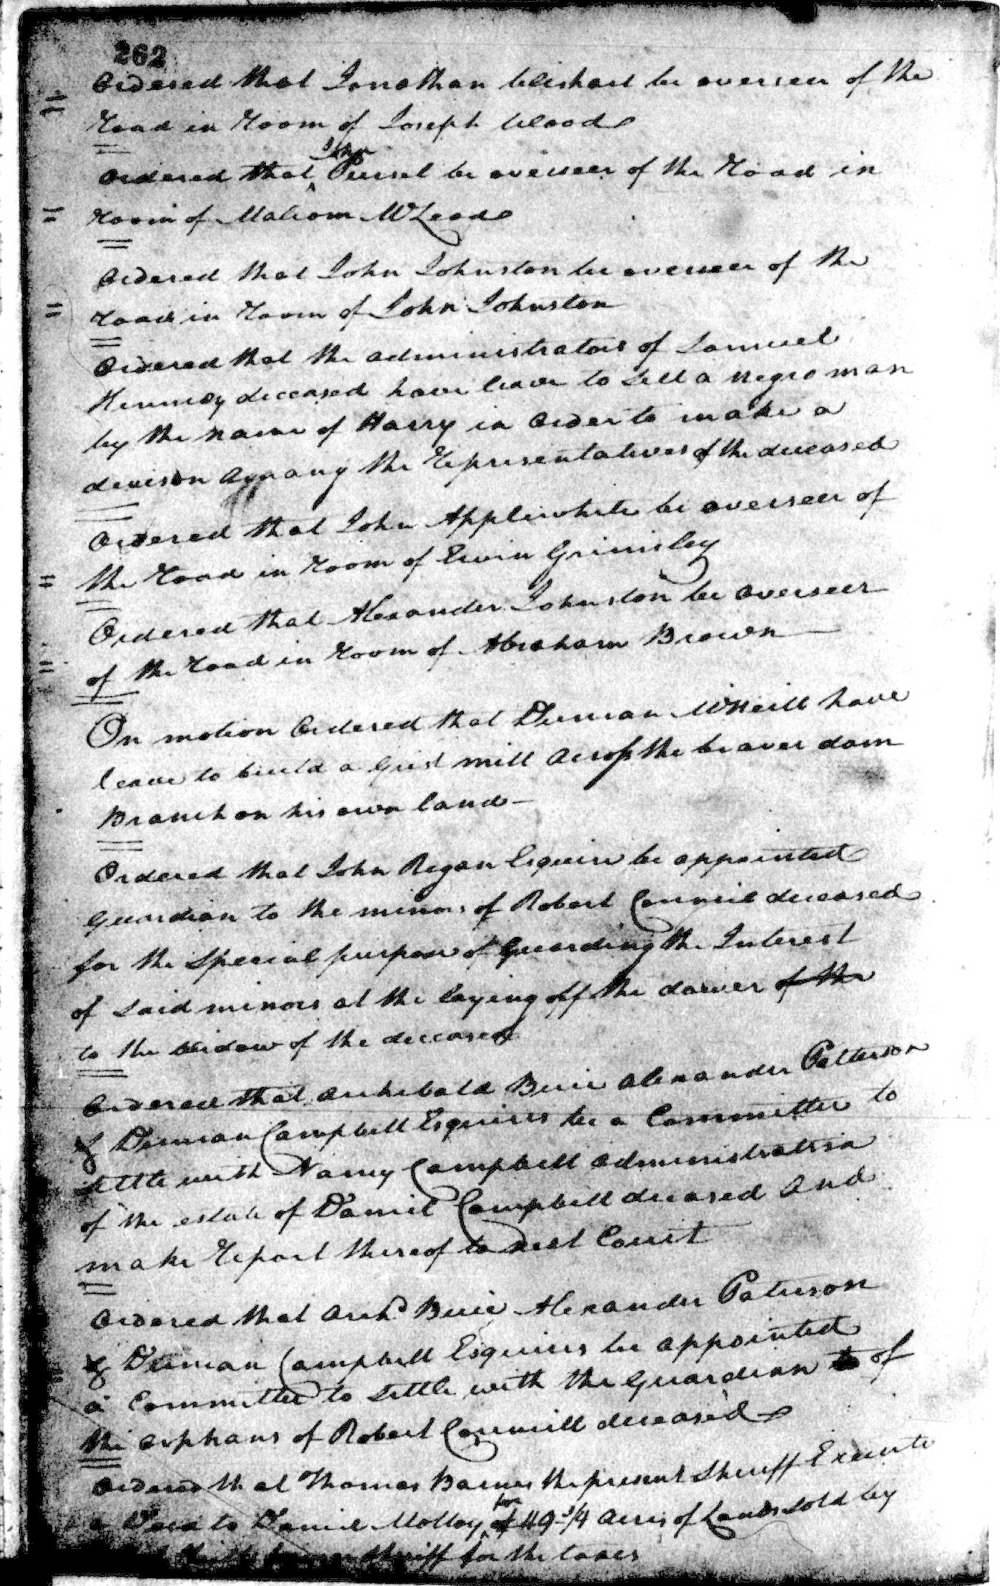 262
Ordered that Jonathan be overseer of the
Road in Room of Joseph Wood
Ordered that John Pursel be overseer of the Road in
room of Malcom McLeod
Ordered that John Johnston be overseer of the
road in Room of John Johnston
Ordered that the administrators of Samuel
deceased have leave to sell a negro man
by the name of Harry in order to make a
devison among the Representatives of the deceased
Ordered that John Applewhite be overseer of
the Road in room of Erwin Grimsley
Ordered that Alexander Johnston be overseer
of the Road in Room of Abraham Brown
On motion Ordered that Duncan McNeill have
leave to build a Grist mill across the beaver dam
Branch on his own land
Ordered that John Regan Esquire be appointed
Guardian to the minors of Robert Council deceased
for the Special purpose of Guarding the Interest
of said minors at the laying off the dower of the
to the widow of the deceased
Ordered that Archibald Buie Alexander Patterson
& Duncan Campbell Esquires be a Committee to
settle with Nancy Campbell administratrix
of the estate of Daniel Campbell deceased and
make Report thereof to next Court
Ordered that Archd Buie Alexander Paterson
& Duncan Campbell Esquires be appointed
a Committee to settle with the Guardian of
the orphans of Robert Council deceased
Ordered that Thomas Barnes the present Sheriff Execute
a Deed to Daniel Molloy for 49 3/4 acres of Land sold by
Sheriff for the taxes